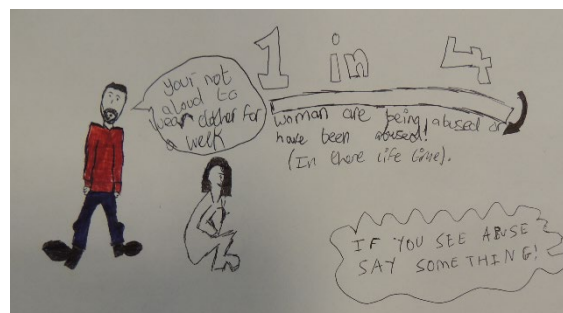 1 in 4
your not
aloud to
wear clothes for
a week
woman are being abused or
have been abused!
(In there life time).
IF YOU SEE ABUSE
SAY SOMETHING!